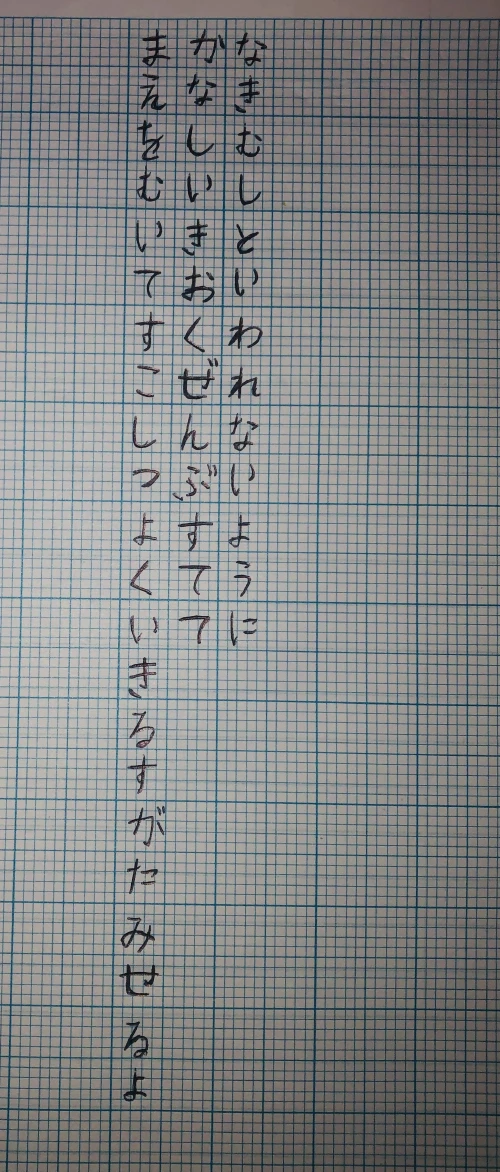 なきむしといわれないように
かなしいきおくぜんぶすてて
まえをむいてすこしつよくいきるすがたみせるよ